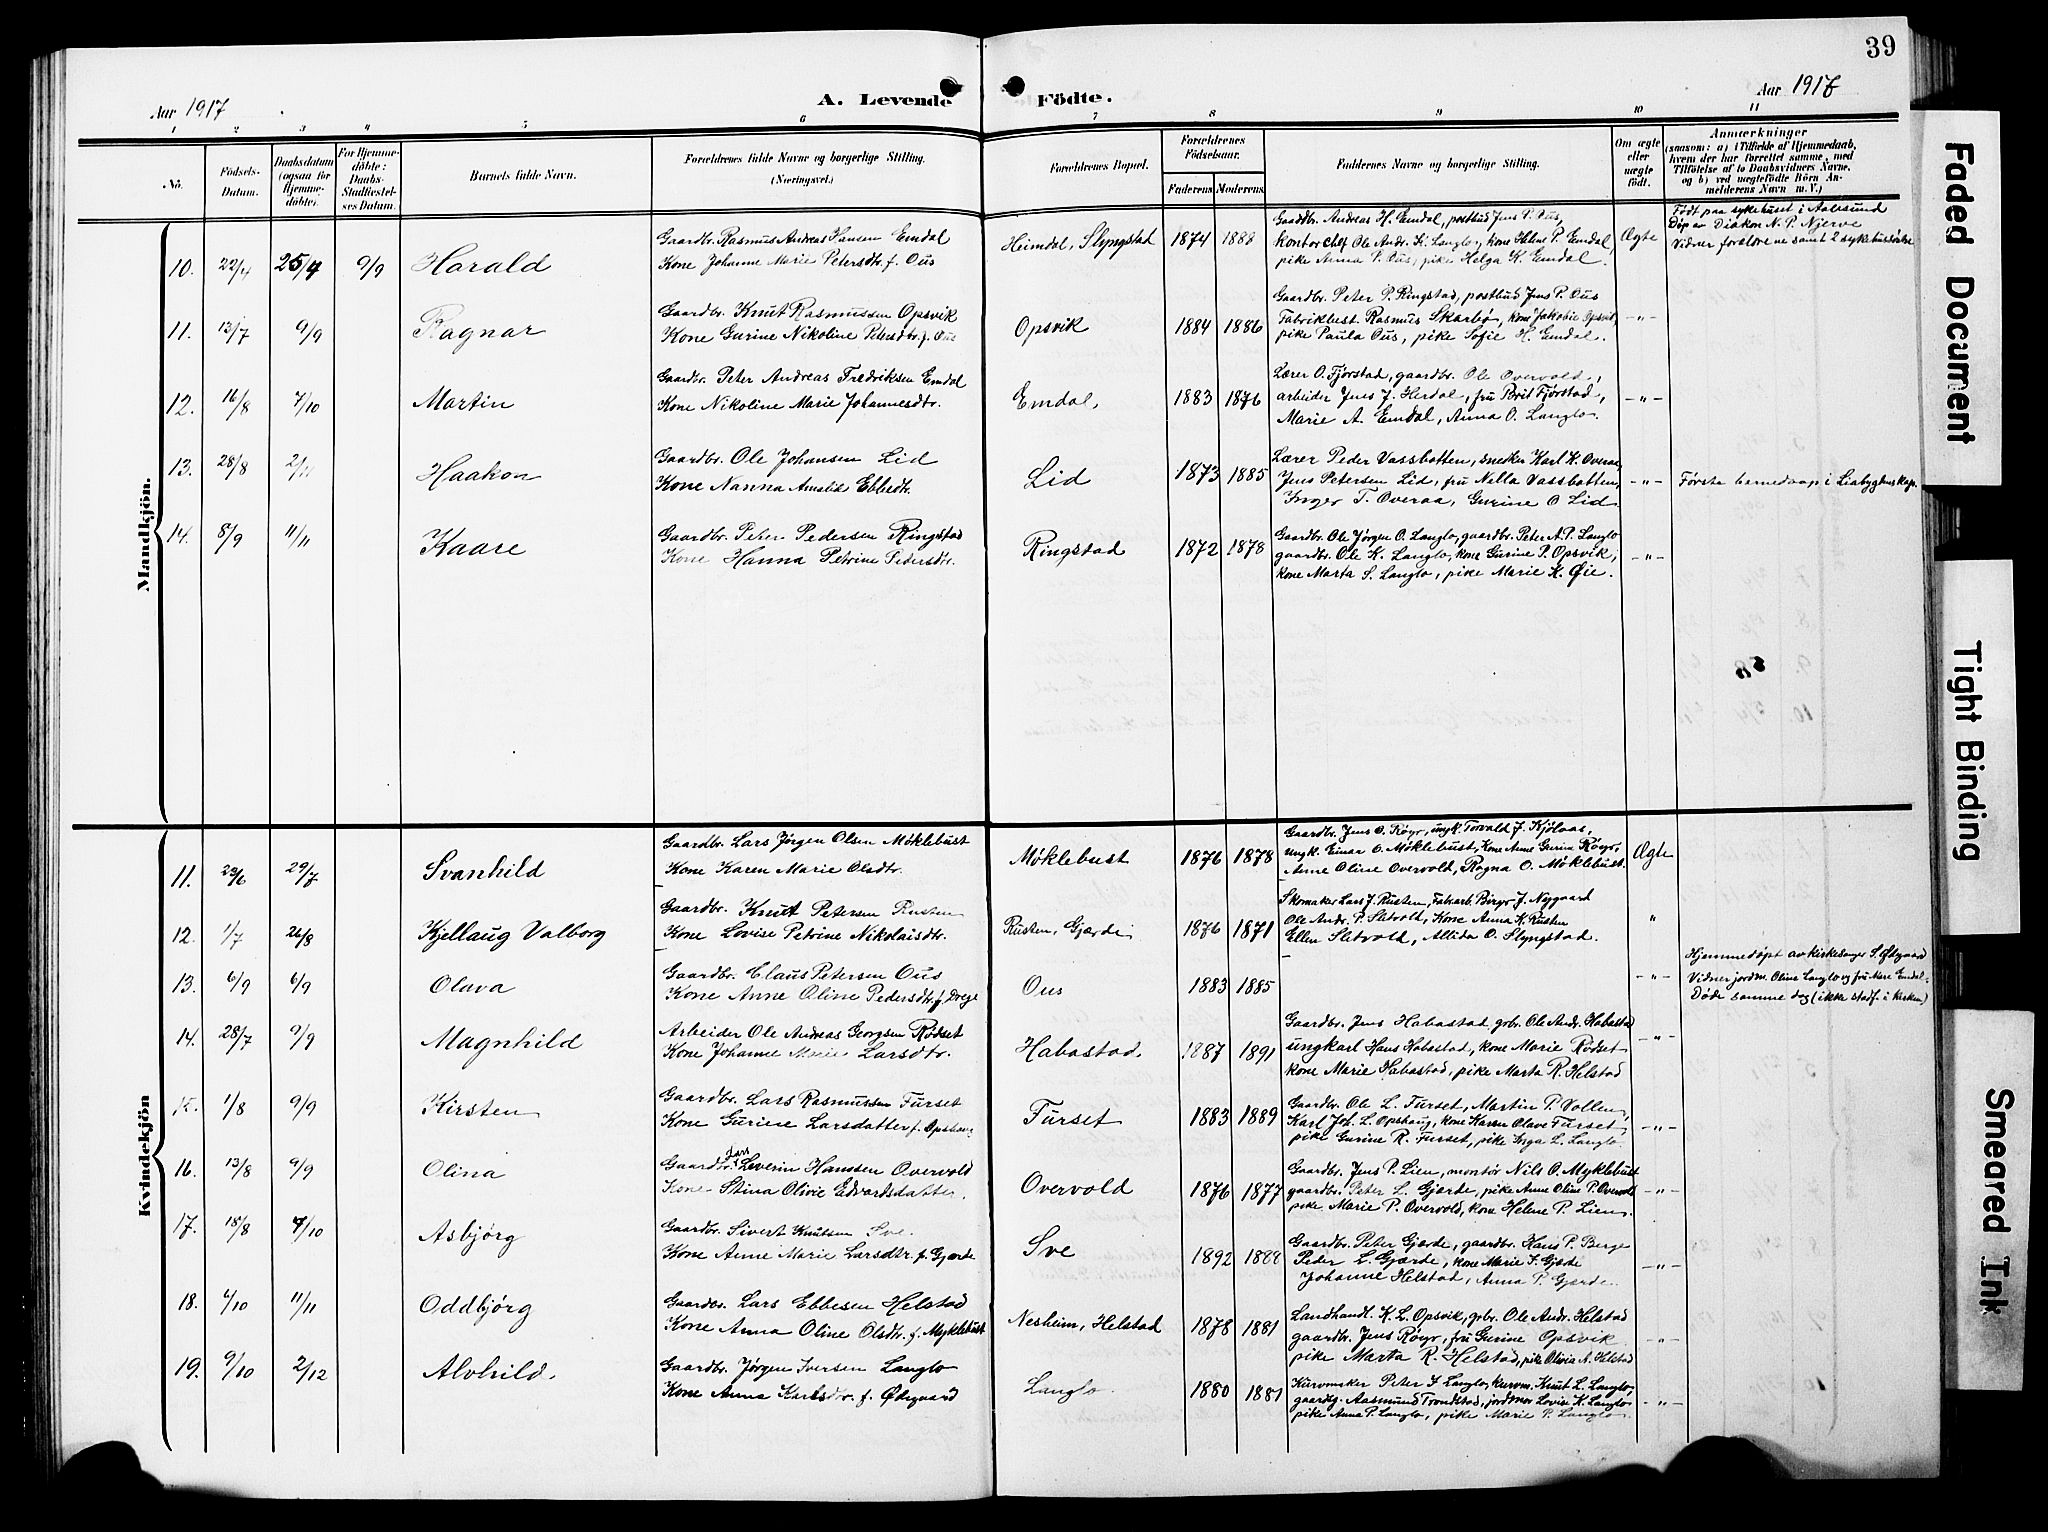 39
Aar 1917
A. Levende Födte.
Aar 1917
1 2 3 4 5 6 7 8 9 10 11
No.
Födsels-Datum.
Daabsdatum (ogsaa for Hjemme-döbte).
For Hjemme-döbte: Daabs-Stadfæstel-ses Datum.
Barnets fulde Navn.
Forældrenes fulde Navne og borgerlige Stilling.
(Næringsvei.)
Forældrenes Bopæl.
Forældrenes Födselsaar.
Faderens. Moderens.
Faddernes Navne og borgerlige Stilling.
Om ægte eller uægte födt.
Anmærkninger
(saasom: a) i Tilfælde af Hjemmedaab,
hvem der har forrettet samme, med
Tilföielse af to Daabsvidners Navne,
og b) ved uægtefödte Börn An-
melderens Navn m. V.)
Mandkjön.
10. 22/4 25/4 9/9 Harald
Gaardbr. Rasmus Andreas Hansen Emdal
Kone Johanne Marie Petersdtr. f. Ous
Heimdal, Slyngstad 1874 1888
Gaardbr. Andreas H. Emdal, postbud Jens P. Ous,
kontorchef Ole Andr. K. Langlo, kone Helene P. Emdal,
pike Anna P. Ous, pike Helga K. Emdal.
Ægte
Født paa sykehuset i Aalesund
Døp av Diakon N. P. Njerve
Vidner forældrene samt 2 sykehussøstre
11. 13/7 9/9 Ragnar
Gaardbr. Knut Rasmussen Opsvik
Kone Gurine Nikoline Petersdtr. f. Ous
Opsvik 1884 1886
Gaardbr. Peter P. Ringstad, postbud Jens P. Ous
Fabrikbest. Rasmus Skarbø, kone Jakobie Opsvik,
pike Paula Ous, pike Sofie H. Emdal.
-"-
12. 16/8 7/10 Martin
Gaardbr. Peter Andreas Fredriksen Emdal
Kone Nikoline Marie Johannesdtr.
Emdal, 1883 1876
Lærer O. Fjørstad, gaardbr. Ole Overvold,
arbeider Jens J. Herdal, fru Brit Fjørstad,
Marie A. Emdal, Anna O. Langlo.
-"-
13. 28/8 2/11 Haakon
Gaardbr. Ole Johansen Lid
Kone Nanna Amalie Ebbesdtr.
Lid 1873 1885
Lærer Peder Vassbotten, snekker Karl K. Overaa,
Jens Petersen Lid, fru Nella Vassbotten,
Inger T. Overaa, Gurine O Lid
-"-
Første barnedaap i Liabygdens kap.
14. 8/9 11/11 Kaare
Gaardbr. Peter Pedersen Ringstad
Kone Hanna Petrine Pedersdtr.
Ringstad 1872 1878
Gaardbr. Ole Jørgen O. Langlo, gaardbr. Peter A. P. Langlo
gaardbr. Ole K. Langlo, kone Gurine P. Opsvik,
kone Marta S. Langlo, pike Marie K. Øie.
-"-
Kvindekjön
11. 23/6 29/7 Svanhild
Gaardbr. Lars Jørgen Olsen Møklebust
Kone Karen Marie Olsdtr.
Møklebust 1876 1878
Gaardbr. Jens O. Røyr, ungk. Torvald J. Kjølaas,
ungk. Einar O. Møklebust, kone Anne Gurine Røyr,
Anne Oline Overvold, Ragna O. Møklebust.
Ægte
12. 1/7 26/8 Kjellaug Valborg
Gaardbr. Knut Petersen Rusten
Kone Lovise Petrine Nikolaisdtr.
Rusten, Gjærde 1876 1871
Skomaker Lars J. Rusten, Fabarb. Birger J. Nygaard
Ole Andr. P. Sletvold, Kone Anna K. Rusten
Ellen Sletvold, Allida O. Slyngstad.
"
13. 6/9 6/9 Olava
Gaardbr. Claus Petersen Ous
Kone Anne Oline Pedersdtr. f. Drege
Ous 1883 1885
-"-
Hjemmedøpt av kirkesanger S. Østgaard
Vidner jordm. Oline Langlo og fru Mare Emdal-
Døde samme dag (ikke stadf. i kirken)
14. 28/7 9/9 Magnhild
Arbeider Ole Andreas Georgsen Rødset
Kone Johanne Marie Larsdtr.
Habostad, 1887 1891
Gaardbr. Jens Habostad, grbr. Ole Andr. Habostad
ungkarl Hans Habostad, kone Marie Rødset
kone Marie Habostad, pike Marta R. Helstad
-"-
15. 1/8 9/9 Kirsten
Gaardbr. Lars Rasmussen Furset
Kone Gurine Larsdatter f. Opshaug
Furset 1883 1889
Gaardbr. Ole L. Furset, Martin P. Vollen,
Karl Joh. L. Opshaug, kone Karen Olave Furset,
pike Gurine R. Furset, pike Inga L. Langlo
-"-
16. 13/8 9/9 Olina
Gaardbr. Lars Severin Hanssen Overvold
Kone Stina Olivie Edvardsdatter.
Overvold 1876 1877
Gaardbr. Jens P. Lien, montør Nils O. Myklebust
gaardbr. Peter L. Gjærde, pike Anne Oline P. Overvold
pike Marie P. Overvold, kone Helene P. Lien.
-"-
17. 18/8 7/10 Asbjørg
Gaardbr. Sivert Knutsen Sve.
Kone Anne Marie Larsdtr. f. Gjærde
Sve 1892 1888
Gaardbr. Peter Gjærde, gaardbr. Hans P. Berge
Peder L. Gjærde, kone Marie J. Gjærde
Johanne Helstad, Anna P. Gjærde.
-"-
18. 6/10 11/11 Oddbjørg
Gaardbr. Lars Ebbesen Helstad
Kone Anna Oline Olsdtr. f. Myklebust
Nesheim, Helstad 1878 1881
Landhandl. K. L. Opsvik, grbr. Ole Andr. Helstad
gaardbr. Jens Røyr, fru Gurine Opsvik
pike Marta R. Helstad, pike Olivia A. Helstad
-"-
19. 9/10 2/12 Alvhild.
Gaardbr. Jørgen Iversen Langlo
Kone Anna Karlsdtr. f. Ødegaard
Langlo. 1880 1881
Kurvmaker Peter I Langlo, kurvm. Knut L. Langlo,
gaardbr. Aasmund Trondstad, jordmor Lovise K. Langlo
pike Anna P. Langlo, pike Marie P. Langlo.
-"-
Faded Document
Tight Binding
Smeared Ink